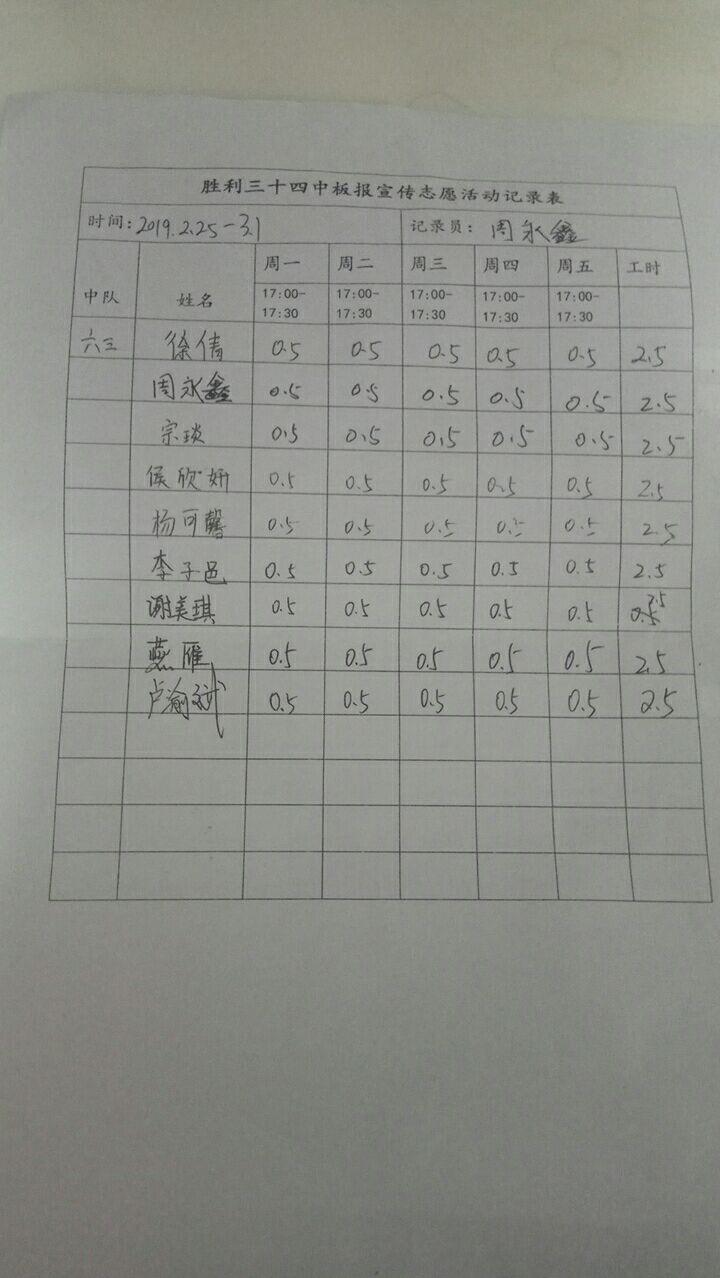 胜利三十四中板报宣传志愿活动记录表
时间：2019.2.25-3.1 记录员：周永鑫
中队 姓名 周一 周二 周三 周四 周五 工时
17:00-17:30 17:00-17:30 17:00-17:30 17:00-17:30 17:00-17:30
六三 徐倩 0.5 0.5 0.5 0.5 0.5 2.5
周永鑫 0.5 0.5 0.5 0.5 0.5 2.5
宗琰 0.5 0.5 0.5 0.5 0.5 2.5
侯欣妍 0.5 0.5 0.5 0.5 0.5 2.5
杨可馨 0.5 0.5 0.5 0.5 0.5 2.5
李子邑 0.5 0.5 0.5 0.5 0.5 2.5
谢美琪 0.5 0.5 0.5 0.5 0.5 2.5
燕雁 0.5 0.5 0.5 0.5 0.5 2.5
卢渝斌 0.5 0.5 0.5 0.5 0.5 2.5